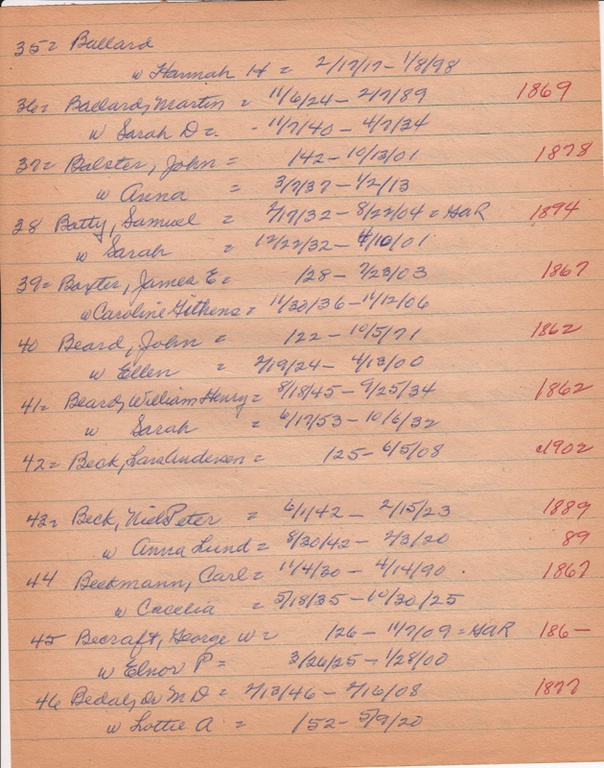 35= Ballard
w Hannah H = 2/17/17 - 1/8/98
36= Ballard, Martin = 11/6/24 - 2/7/89 1869
w Sarah D = - 11/7/40 - 4/7/34
37= Balster, John = 142 - 10/13/01 1878
w Anna = 3/7/37 - 1/2/13
38 Batty, Samuel = 2/19/32 - 8/22/04 = GAR 1894
w Sarah = 12/22/32 - 4/10/01
39= Baxter, James E = 128 - 7/23/03 1867
w Caroline Githens = 11/30/36 - 11/12/06
40 Beard, John = 122 - 10/5/71 1862
w Ellen = 2/19/24 - 4/13/00
41= Beard, William Henry = 8/18/45 - 9/25/34 1862
w Sarah = 6/17/53 - 10/6/32
42= Beck, Lars Andersen = 125 - 6/5/08 c1902
43= Beck, Niel Peter = 6/1/42 - 2/15/23 1889
w Anna Lund = 8/30/42 - 2/3/20 89
44 Beekmann, Carl = 11/4/30 - 4/14/90 1867
w Cecelia = 5/18/35 - 10/30/25
45 Becraft, George W = 126 - 11/7/09 = GAR 186-
w Elnor P = 3/26/25 - 1/28/00
46 Bedal, Dr M D = 2/13/46 - 2/16/08 1877
w Lottie A = 152 - 5/9/20